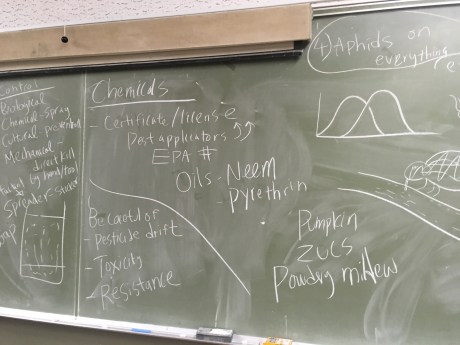 Control
Biological
Chemical-Spray
Cultural-prevention
Mechanical -
direct kill
by hand/tool
Spreader-
Chemicals
- Certificate/license
Pest applicators
EPA #
Oils - Neem
- Pyrethrin
Be careful of
- Pesticide drift
- Toxicity
- Resistance
4) Aphids on
everything
Pumpkin
ZUCS
Powdery mildew